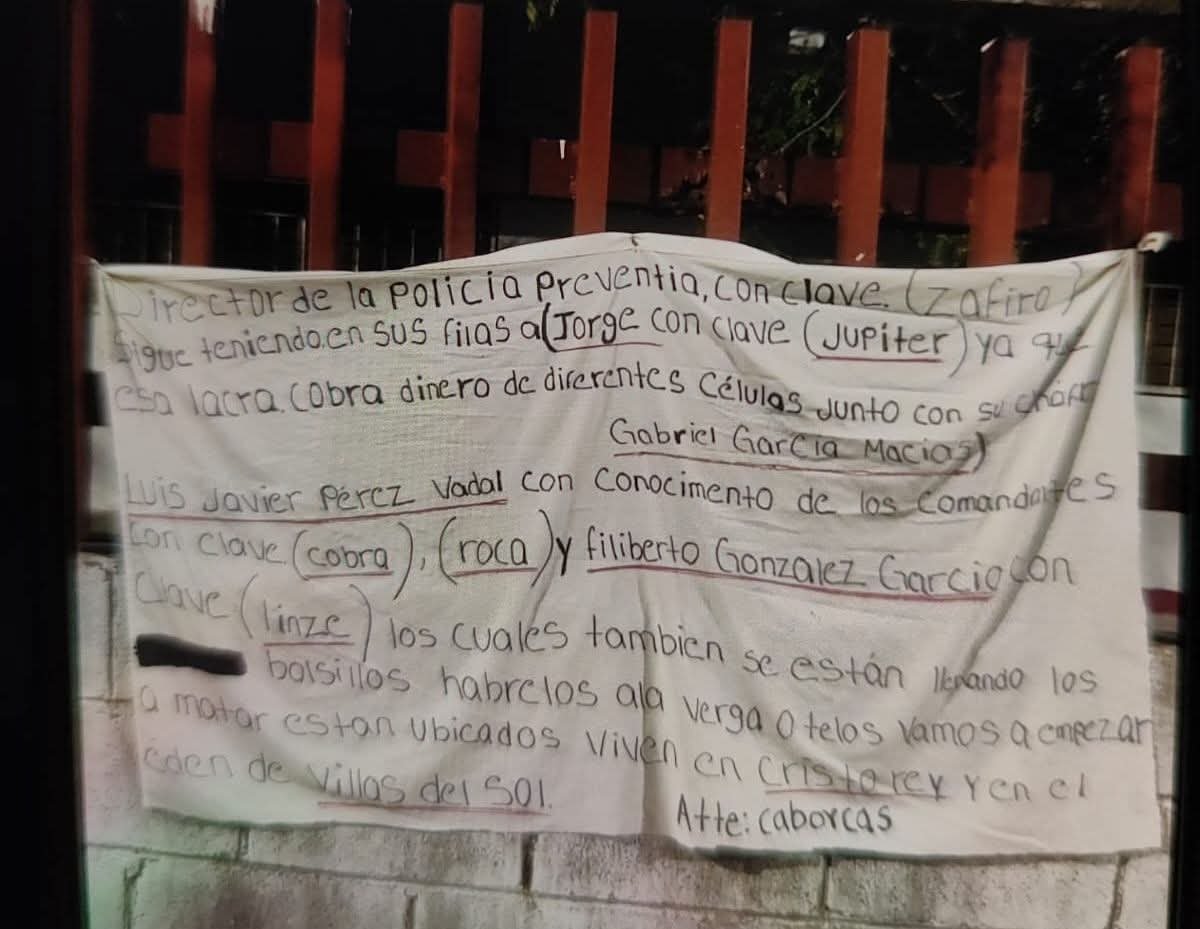 Director de la policia preventia, con clave. (Zafiro)
Sigue teniendo en sus filas a (Jorge con clave (Jupiter) ya que
esa lacra cobra dinero de diferentes células junto con su chofer
Gabriel Garcia Macias)
Luis Javier Pérez Vadal con conocimento de los comandantes
con clave (cobra), (roca) y filiberto Gonzalez Garcia con
clave (linze) los cuales tambien se están llenando los
bolsillos habrelos ala verga o telos vamos a empezar
a matar estan ubicados viven en cristo rey y en el
eden de villas del sol.
Atte: caborcas